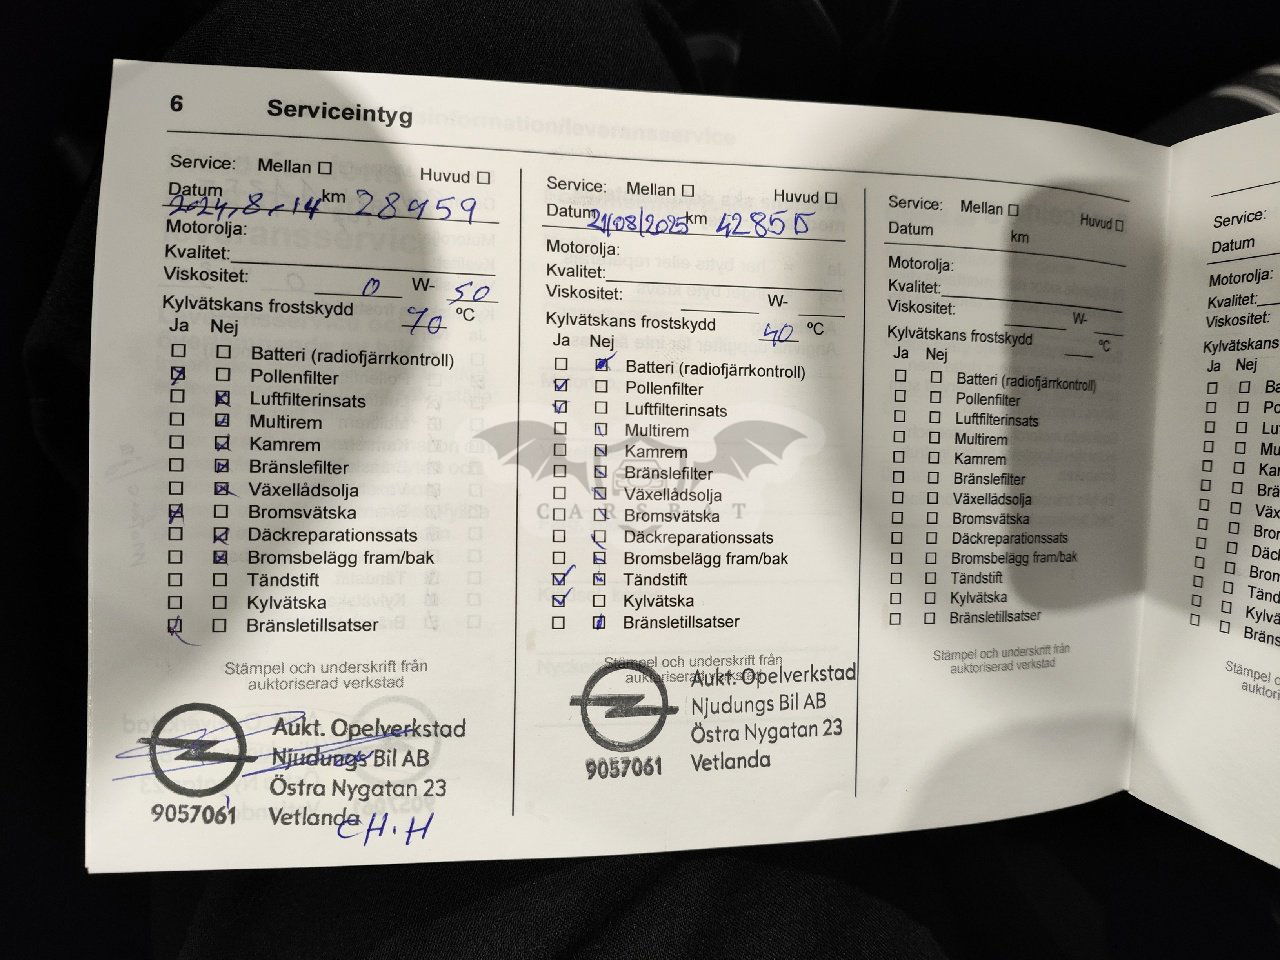 6 Serviceintyg
Service: Mellan Huvud
Datum 2024,8,14 km 28959
Motorolja:
Kvalitet:
Viskositet: 0 W- 50
Kylvätskans frostskydd 40 °C
Ja Nej
Batteri (radiofjärrkontroll)
Pollenfilter
Luftfilterinsats
Multirem
Kamrem
Bränslefilter
Växellådsolja
Bromsvätska
Däckreparationssats
Bromsbelägg fram/bak
Tändstift
Kylvätska
Bränsletillsatser
Stämpel och underskrift från
auktoriserad verkstad
Aukt. Opelverkstad
Njudungs Bil AB
Östra Nygatan 23
9057061 Vetlanda
CH.H
Service: Mellan Huvud
Datum 21/08/2025 km 42855
Motorolja:
Kvalitet:
Viskositet: W-
Kylvätskans frostskydd 40 °C
Ja Nej
Batteri (radiofjärrkontroll)
Pollenfilter
Luftfilterinsats
Multirem
Kamrem
Bränslefilter
Växellådsolja
Bromsvätska
Däckreparationssats
Bromsbelägg fram/bak
Tändstift
Kylvätska
Bränsletillsatser
Stämpel och underskrift från
auktoriserad verkstad
Aukt. Opelverkstad
Njudungs Bil AB
Östra Nygatan 23
9057061 Vetlanda
CARSBAT
Service: Mellan Huvud
Datum km
Motorolja:
Kvalitet:
Viskositet: W-
Kylvätskans frostskydd °C
Ja Nej
Batteri (radiofjärrkontroll)
Pollenfilter
Luftfilterinsats
Multirem
Kamrem
Bränslefilter
Växellådsolja
Bromsvätska
Däckreparationssats
Bromsbelägg fram/bak
Tändstift
Kylvätska
Bränsletillsatser
Stämpel och underskrift från
auktoriserad verkstad
Service:
Datum
Motorolja:
Kvalitet:
Viskositet:
Kylvätskans
Ja Nej
Ba
Po
Lu
Mu
Ka
Brä
Väx
Bron
Däc
Brom
Tänd
Kylvä
Bräns
Stämpel o
auktori